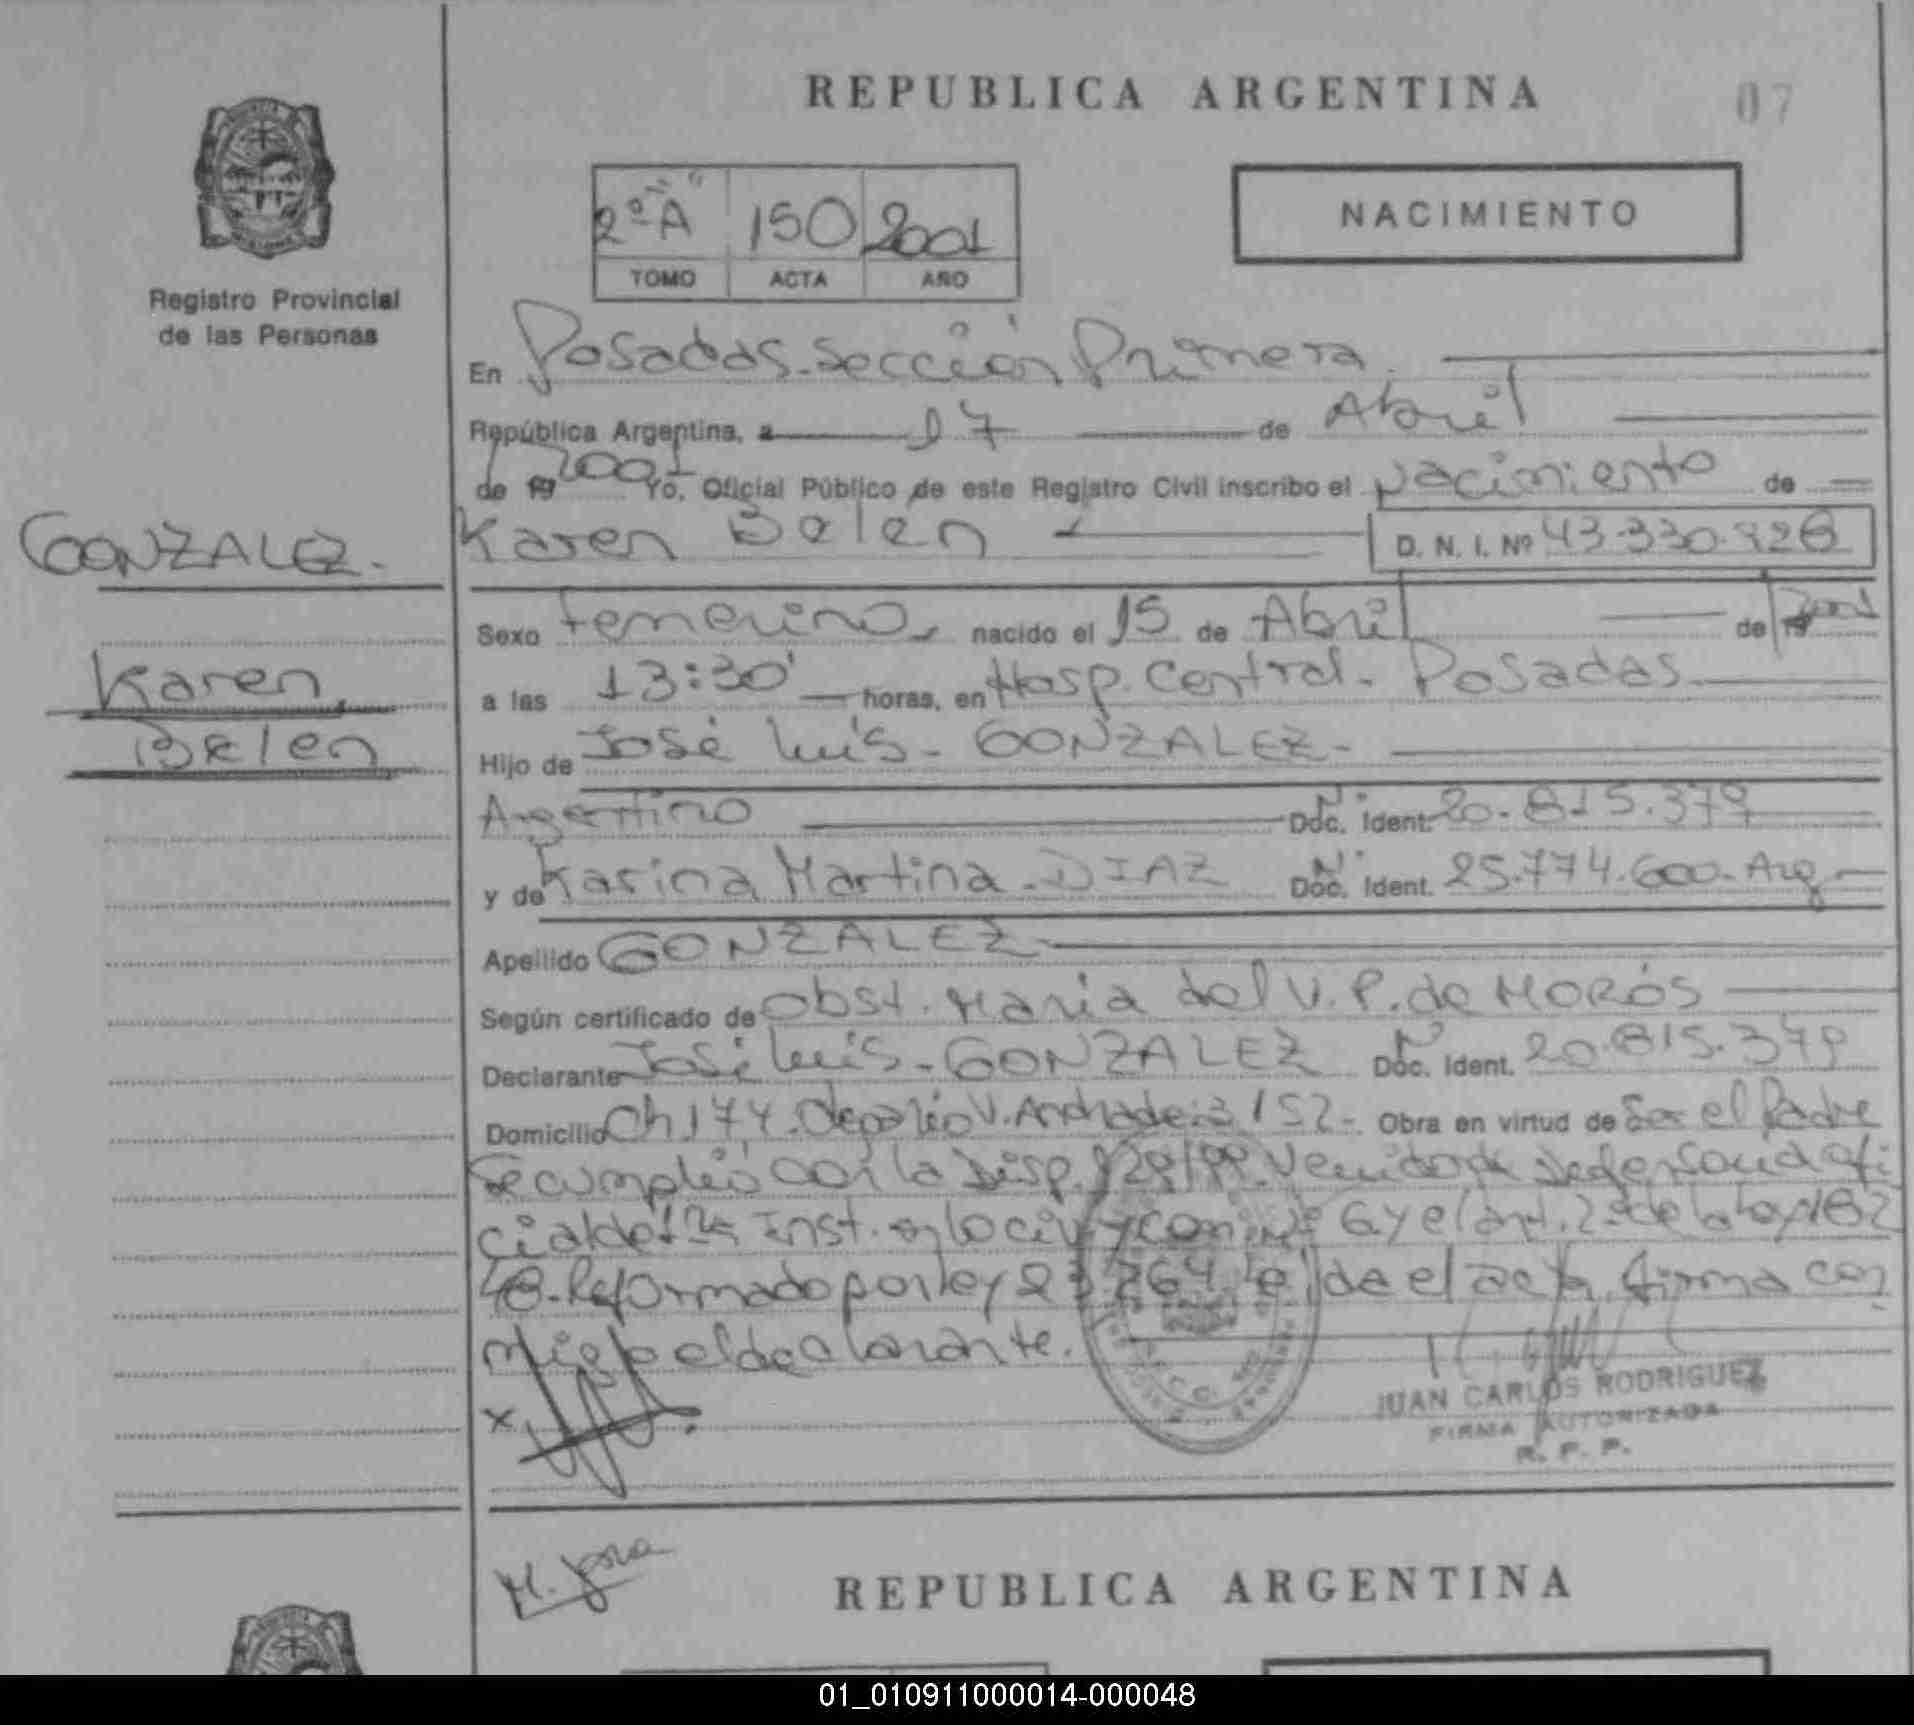 REPUBLICA ARGENTINA
07
2º "A" 150 2001
TOMO ACTA AÑO
NACIMIENTO
Registro Provincial
de las Personas
En Posadas-Sección Primera.
República Argentina, a 17 de Abril
de 19 2001 Yo, Oficial Público de este Registro Civil inscribo el Nacimiento de
GONZALEZ.
Karen Belen
D. N. I. Nº 43.330.928
Sexo femenino, nacido el 15 de Abril de 19 2001
Karen
Belen
a las 13:30' horas, en Hosp. Central. Posadas
Hijo de José Luis - GONZALEZ-
Argentino Nº Doc. Ident. 20.815.379
y de Karina Martina - DIAZ Nº Doc. Ident. 25.774.600- Arg
Apellido GONZALEZ
Según certificado de Obst. Maria del V. P. de MOROS
Declarante José Luis - GONZALEZ Nº Doc. Ident. 20.815.379
Domicilio Ch 174. V. Andrade 152- Obra en virtud de Ser el Padre
Se cumplió con la Disp. de defensoria ofi
cial de 1ra Inst. en lo civ y com Nº 6 y el art. 2º de la ley 182
48. Reformado por ley 23.264 leida el acta, firma con
migo el declarante.
x
JUAN CARLOS RODRIGUEZ
FIRMA AUTORIZADA
R. P. P.
REPUBLICA ARGENTINA
01_010911000014-000048